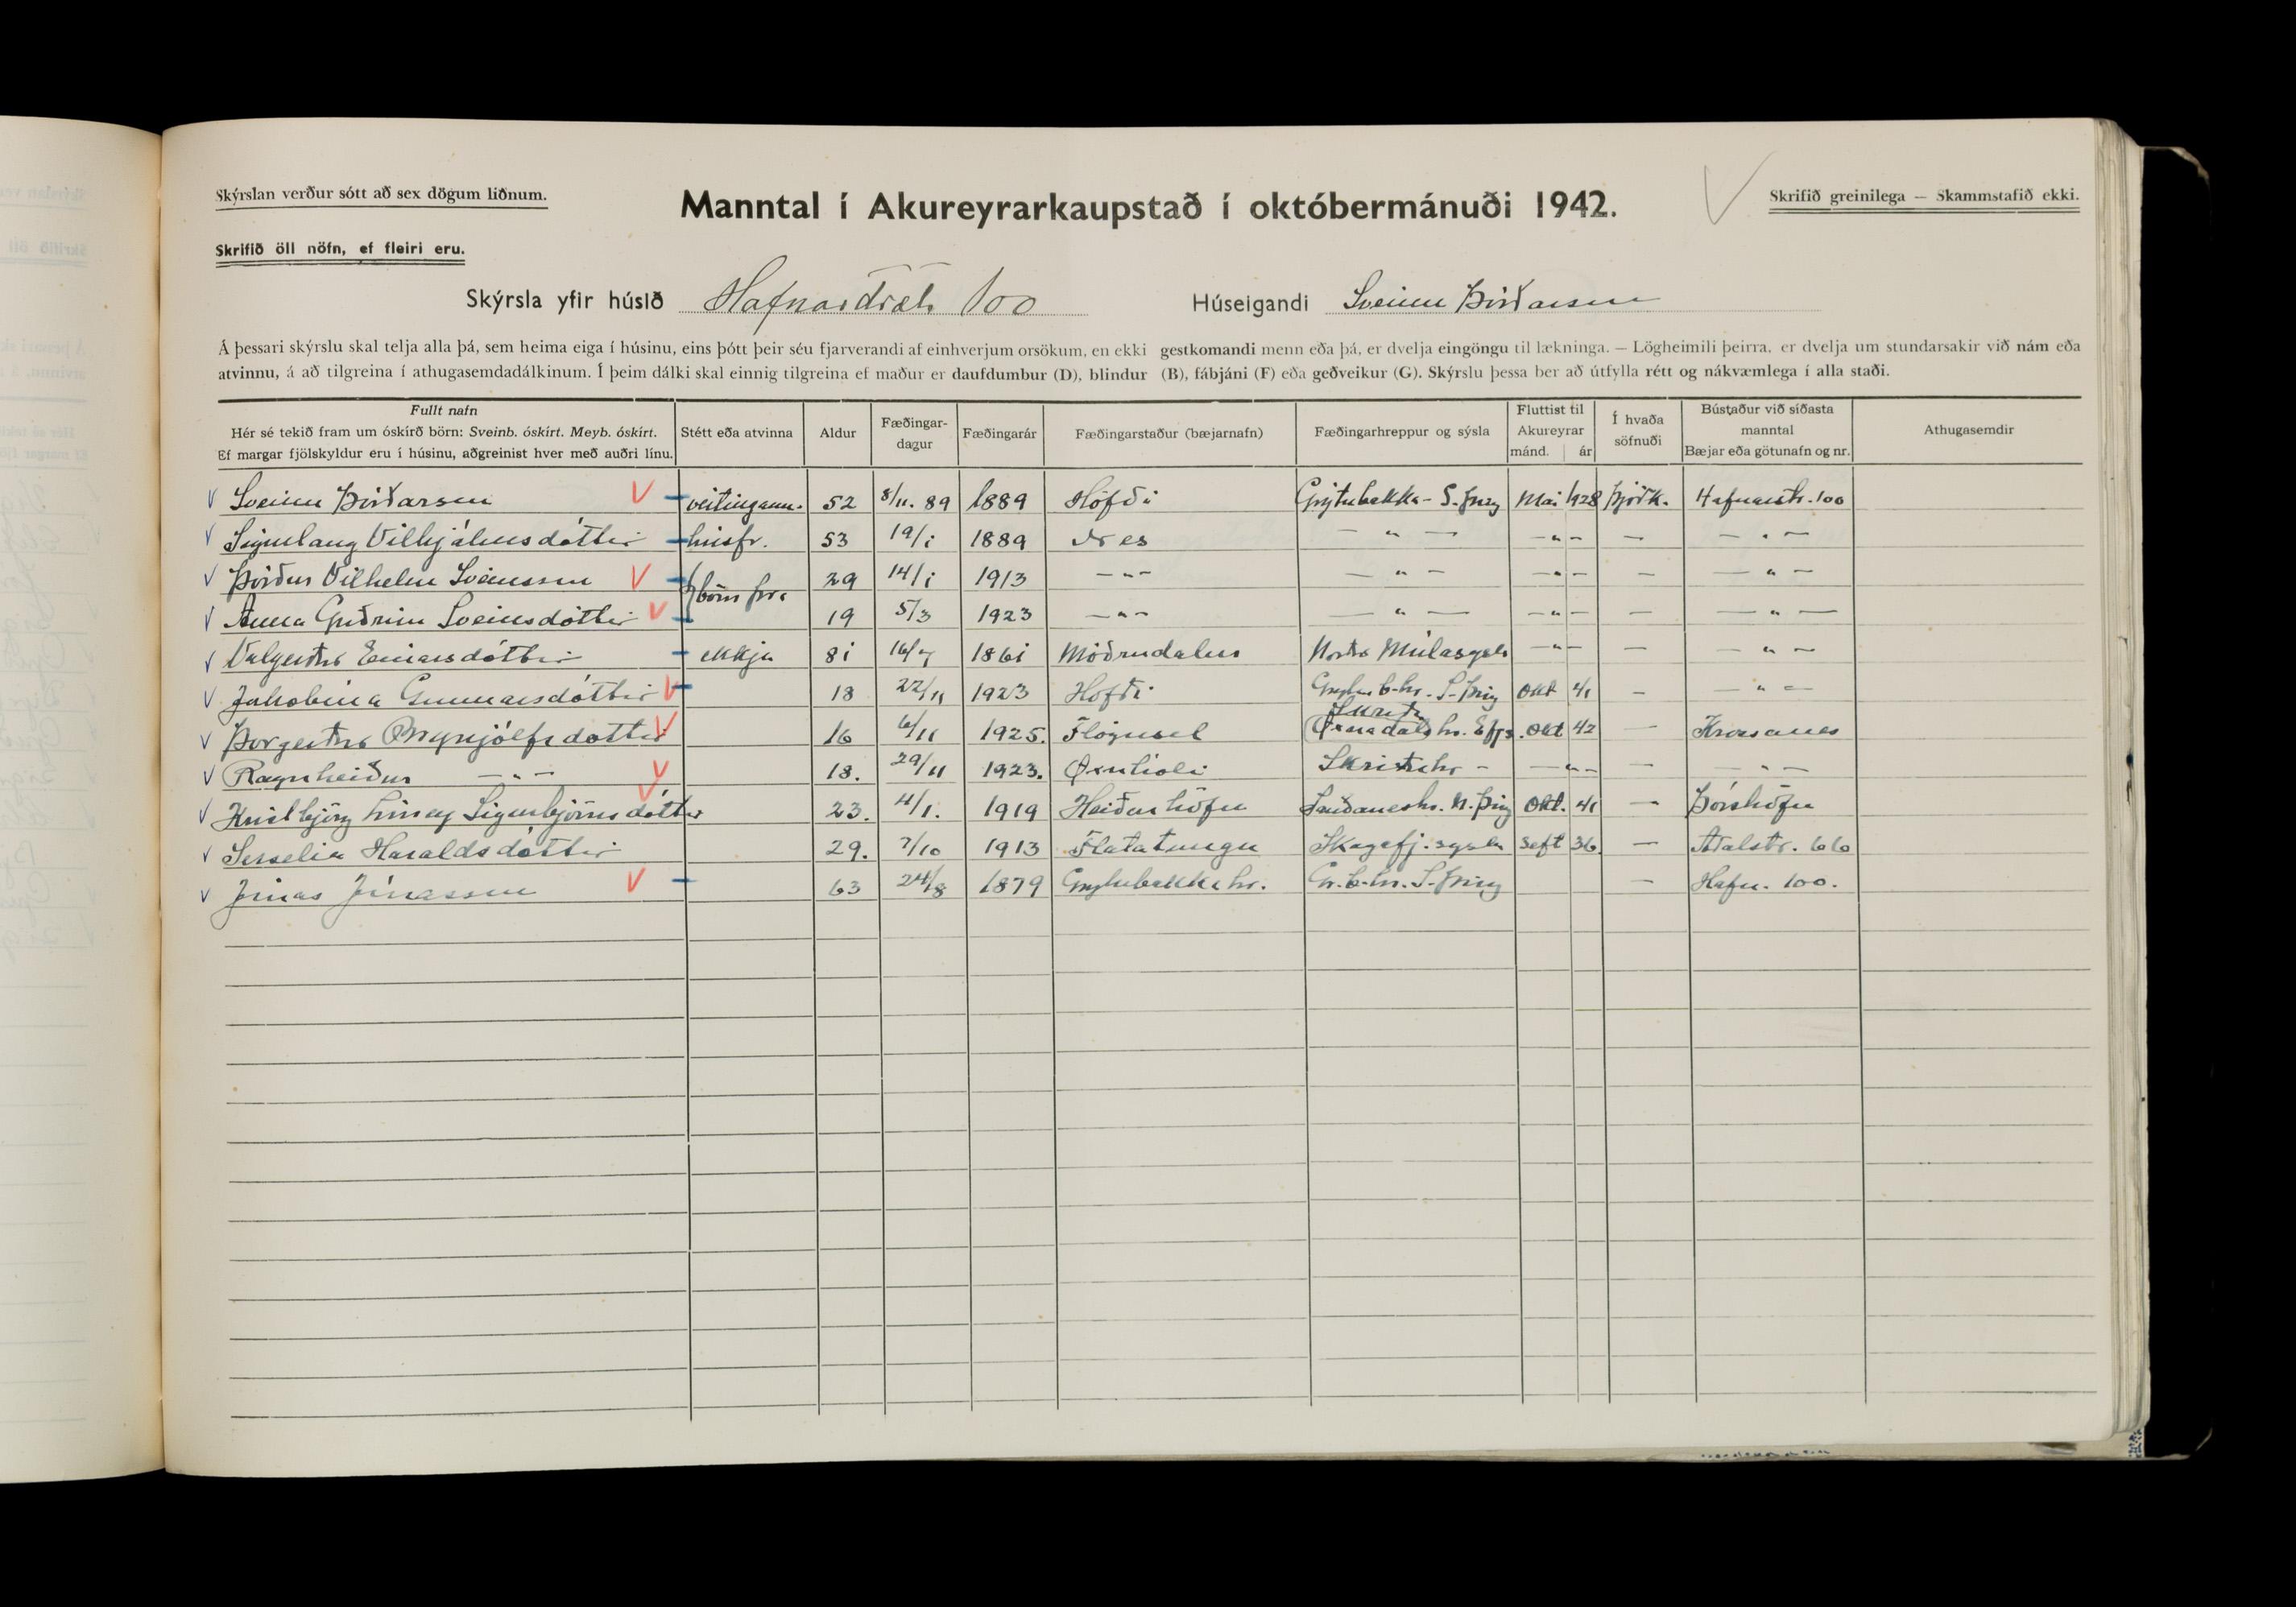 Skýrslan verður sótt að sex dögum liðnum.
Manntal í Akureyrarkaupstað í októbermánuði 1942.
Skrifið greinilega — Skammstafið ekki.
Skrifið öll nöfn, ef fleiri eru.
Skýrsla yfir húsið Hafnarstræti 100 Húseigandi Sveinn Þórðarson
Á þessari skýrslu skal telja alla þá, sem heima eiga í húsinu, eins þótt þeir séu fjarverandi af einhverjum orsökum, en ekki gestkomandi menn eða þá, er dvelja eingöngu til lækninga. — Lögheimili þeirra, er dvelja um stundarsakir við nám eða
atvinnu, á að tilgreina í athugasemdadálkinum. Í þeim dálki skal einnig tilgreina ef maður er daufdumbur (D), blindur (B), fábjáni (F) eða geðveikur (G). Skýrslu þessa ber að útfylla rétt og nákvæmlega í alla staði.
Fullt nafn
Hér sé tekið fram um óskírð börn: Sveinb. óskírt. Meyb. óskírt.
Ef margar fjölskyldur eru í húsinu, aðgreinist hver með auðri línu.
Stétt eða atvinna
Aldur
Fæðingar-
dagur
Fæðingarár
Fæðingarstaður (bæjarnafn)
Fæðingarhreppur og sýsla
Fluttist til
Akureyrar
mánd. ár
Í hvaða
söfnuði
Bústaður við síðasta
manntal
Bæjar eða götunafn og nr.
Athugasemdir
Sveinn Þórðarson veitingam. 52 8/11. 89 1889 Höfði Grýtubakka- S. Þing Mai 1928 Þjóðk. Hafnarstr. 100
Sigurlaug Vilhjálmsdóttir húsfr. 53 19/1 1889 Nes — " — — " — — — " —
Þórður Vilhelm Sveinsson börn þra 29 14/1 1913 — " — — " — — " — — — " —
Anna Guðrún Sveinsdóttir 19 5/3 1923 — " — — " — — " — — — " —
Valgerður Einarsdóttir ekkja 81 16/7 1861 Möðrudalur Norður Múlasýsla — " — — — " —
Jakobína Gunnarsdóttir 18 22/11 1923 Höfði Grýtub.hr. S-Þing Okt 41 — — " —
Skriðu
Þorgerður Brynjólfsdóttir 16 6/11 1925. Flögusel Öxnadalshr. Efjs. Okt 42 — Krossanes
Ragnheiður — " — 18. 29/11 1923. Öxnhóli Skriðuhr - — " — — — " —
Kristbjörg Liney Sigurbjörnsdóttir 23. 4/1. 1919 Heiðarhöfn Sauðaneshr. N. Þing Okt. 41 — Þórshöfn
Sesselia Haraldsdóttir 29. 7/10 1913 Flatatunga Skagafj. sýsla Seft 36. — Aðalstr. 66
Jónas Jónasson 63 24/8 1879 Grýtubakkahr. Gr.b.hr. S-Þing — Hafn. 100.